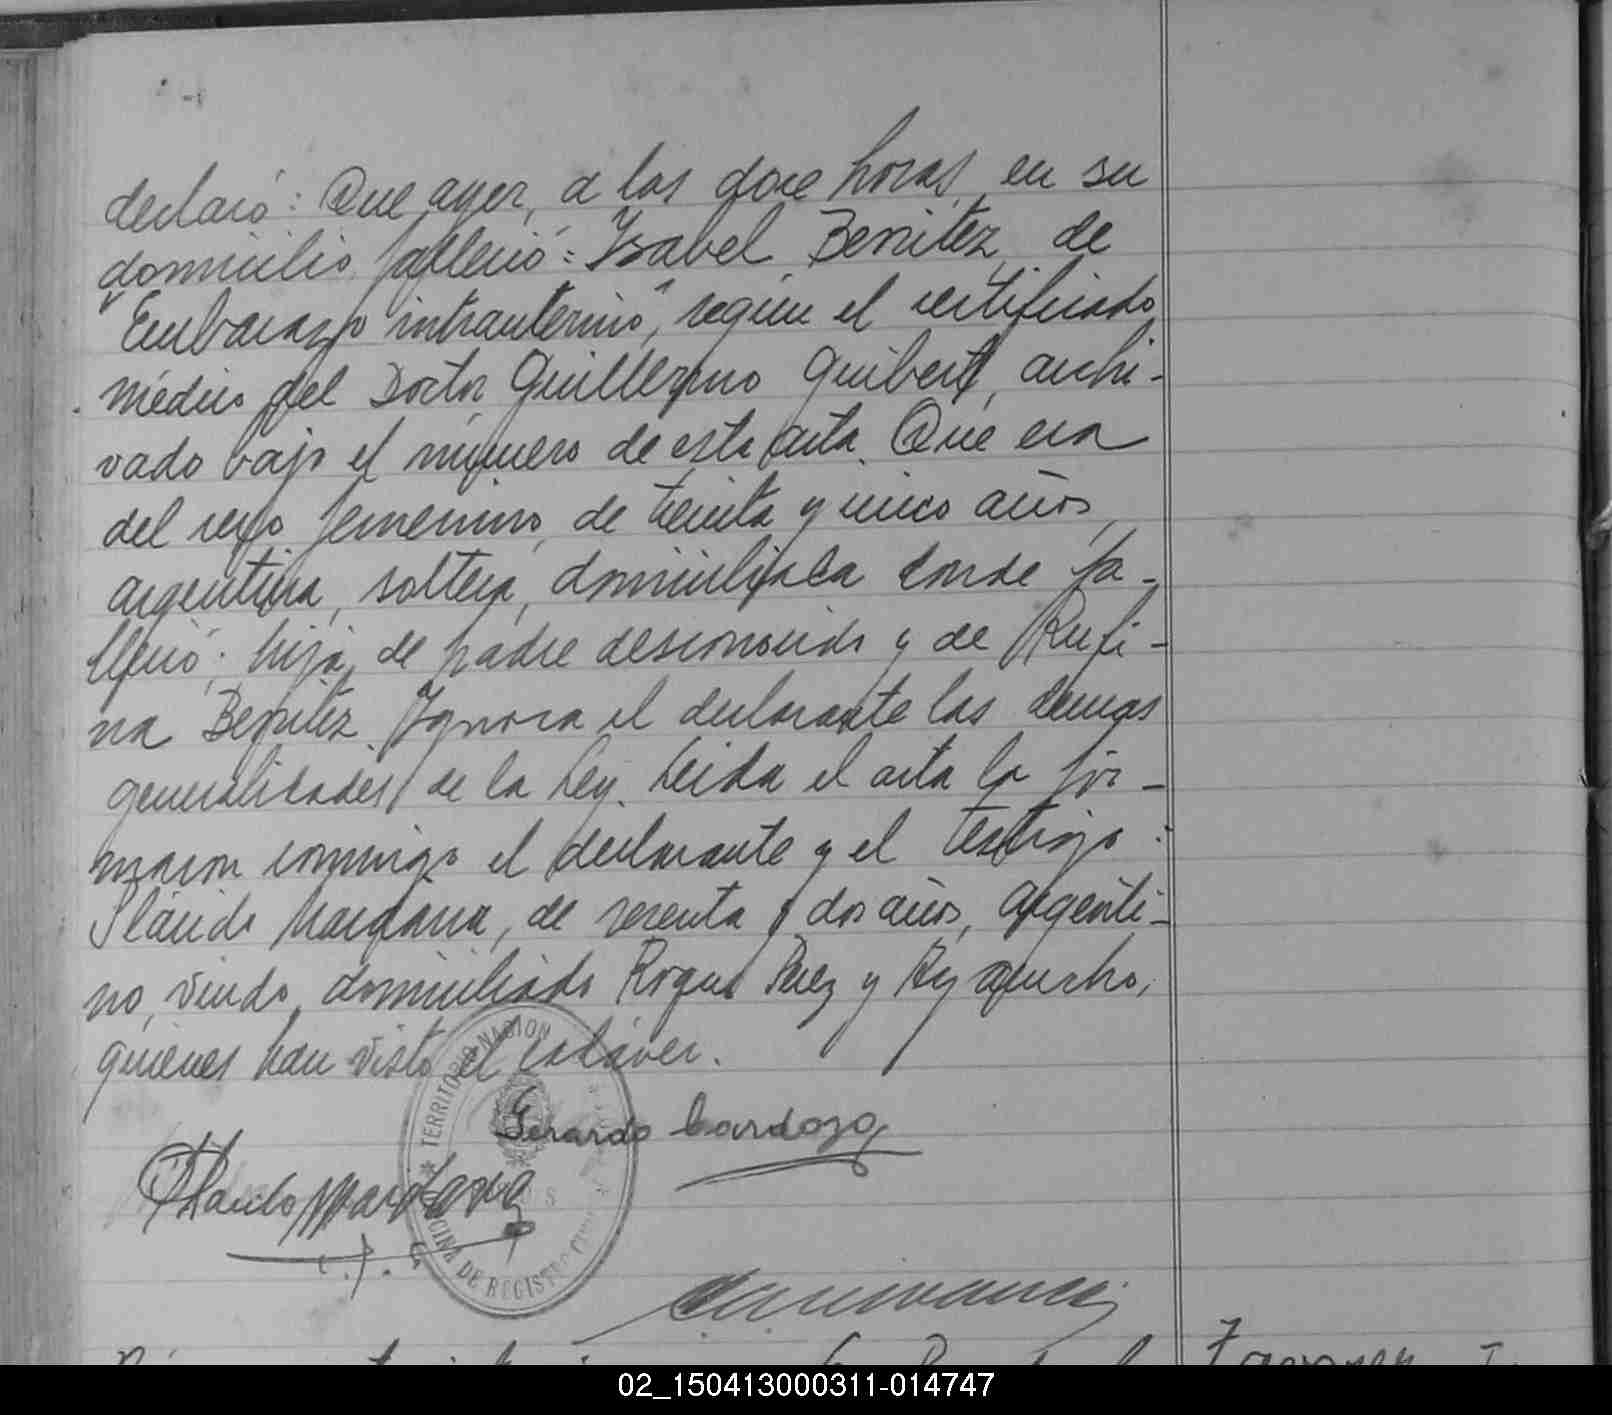 declaró: Que ayer, a las doce horas, en su
domicilio falleció: Ysabel Benitez, de
"Embarazo intrauterino", según el certificado
médico del Doctor Guillermo Guibert, archi-
vado bajo el número de esta acta. Que era
del sexo femenino, de treinta y cinco años,
argentina, soltera, domiciliada donde fa-
lleció; hija, de padre desconocido y de Rufi-
na Benitez. Ygnora el declarante las demas
generalidades de la Ley. Leida el acta la fir-
maron conmigo el declarante y el testigo:
Plácido Maidana, de sesenta y dos años, argenti-
no, viudo, domiciliado Roque Paez y Ayacucho,
quienes han visto el cadáver.
TERRITORIO NACION
Gerardo Cardozo
Placido Maidana
OFICINA DE REGISTRO CIVIL
02_150413000311-014747